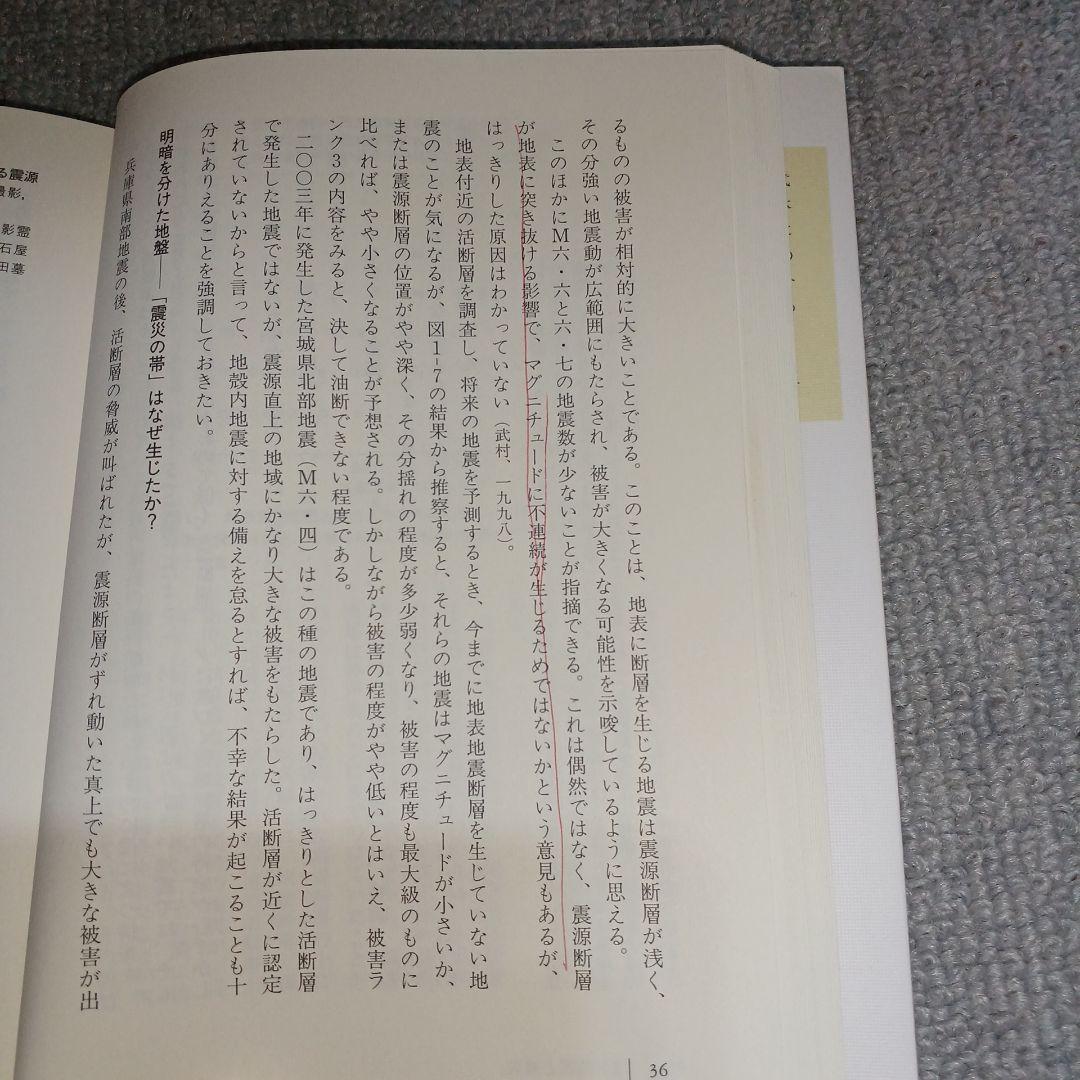 るものの被害が相対的に大きいことである。このことは、地表に断層を生じる地震は震源断層が浅く、
その分強い地震動が広範囲にもたらされ、被害が大きくなる可能性を示唆しているように思える。
このほかにＭ六・六と六・七の地震数が少ないことが指摘できる。これは偶然ではなく、震源断層
が地表に突き抜ける影響で、マグニチュードに不連続が生じるためではないかという意見もあるが、
はっきりした原因はわかっていない（武村、一九九八）。
地表付近の活断層を調査し、将来の地震を予測するとき、今までに地表地震断層を生じていない地
震のことが気になるが、図1-7の結果から推察すると、それらの地震はマグニチュードが小さいか、
または震源断層の位置がやや深く、その分揺れの程度が多少弱くなり、被害の程度も最大級のものに
比べれば、やや小さくなることが予想される。しかしながら被害の程度がやや低いとはいえ、被害ラ
ンク3の内容をみると、決して油断できない程度である。
二〇〇三年に発生した宮城県北部地震（Ｍ六・四）はこの種の地震であり、はっきりとした活断層
で発生した地震ではないが、震源直上の地域にかなり大きな被害をもたらした。活断層が近くに認定
されていないからと言って、地殻内地震に対する備えを怠るとすれば、不幸な結果が起こることも十
分にありえることを強調しておきたい。
明暗を分けた地盤――「震災の帯」はなぜ生じたか？
兵庫県南部地震の後、活断層の脅威が叫ばれたが、震源断層がずれ動いた真上でも大きな被害が出
36
る震源
最影，
影霊
石屋
田墓